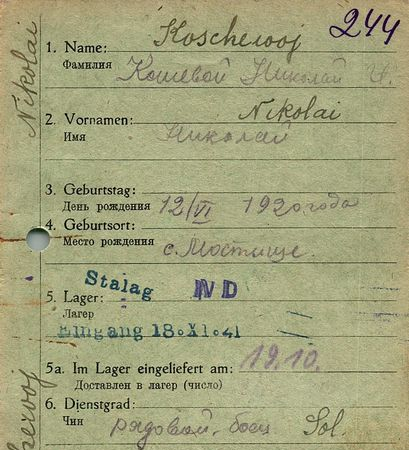 244
Koschewoj
1. Name:
Фамилия Кошевой Николай И.
Nikolai
2. Vornamen:
Имя Николай
3. Geburtstag:
День рождения 12/VI 1920 года
4. Geburtsort:
Место рождения с. Мостище
Stalag IV D
5. Lager:
Лагер
Eingang 18.XI.41
5a. Im Lager eingeliefert am: 19.10.
Доставлен в лагер (число)
6. Dienstgrad:
Чин рядовой. боец Sol.
Nikolai